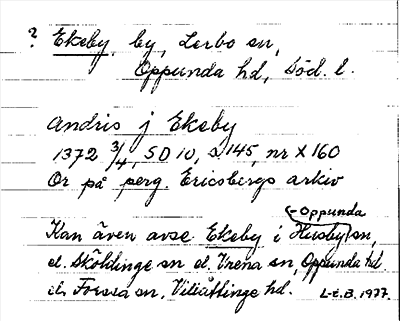 ? Ekeby by, Lerbo sn,
Oppunda hd, Söd. l.
Andris j Ekeby
1372 3/4, SD 10, s 145, nr X 160
Or på perg. Ericsbergs arkiv
Kan även avse Ekeby i (-Oppunda) Husby sn,
el. Sköldinge sn el. Vrena sn, Oppunda hd
el. Forssa sn, Villåttinge hd. L-E.B. 1977.